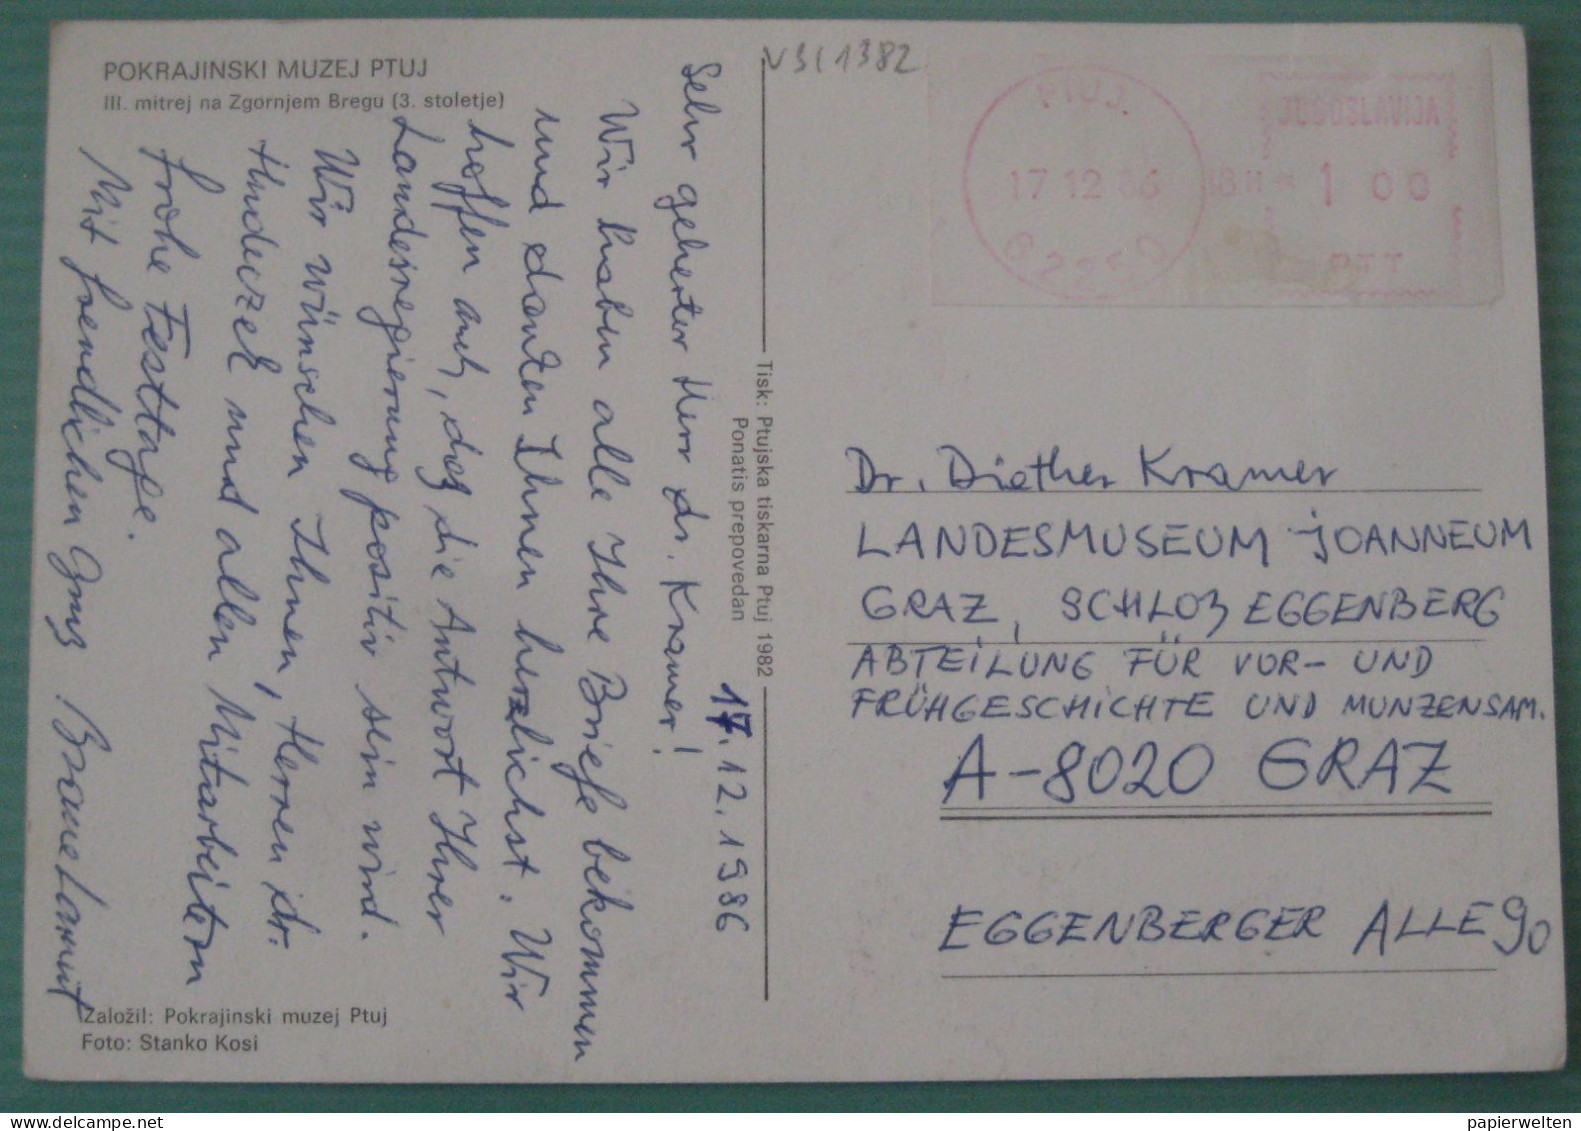 POKRAJINSKI MUZEJ PTUJ
III. mitrej na Zgornjem Bregu (3. stoletje)
VSC1382
PTUJ
17 12 86
62250
JUGOSLAVIJA
1 00
PTT
17.12.1986
Sehr geherter Herr dr. Kramer!
Wir haben alle Ihre Briefe bekommen
und danken Ihnen herzlichst. Wir
hoffen auch, das die Antwort Ihrer
Landesregierung positiv sein wird.
Wir wünschen Ihnen, Herren dr.
Hudeczek und allen Mitarbeitern
frohe Festtage.
Mit freudlichen Grus
Tisk: Ptujska tiskarna Ptuj 1982
Ponatis prepovedan
Dr. Diether Kramer
LANDESMUSEUM JOANNEUM
GRAZ, SCHLOß EGGENBERG
ABTEILUNG FÜR VOR- UND
FRÜHGESCHICHTE UND MUNZENSAM.
A-8020 GRAZ
EGGENBERGER ALLE 90
Založil: Pokrajinski muzej Ptuj
Foto: Stanko Kosi
papierwelten